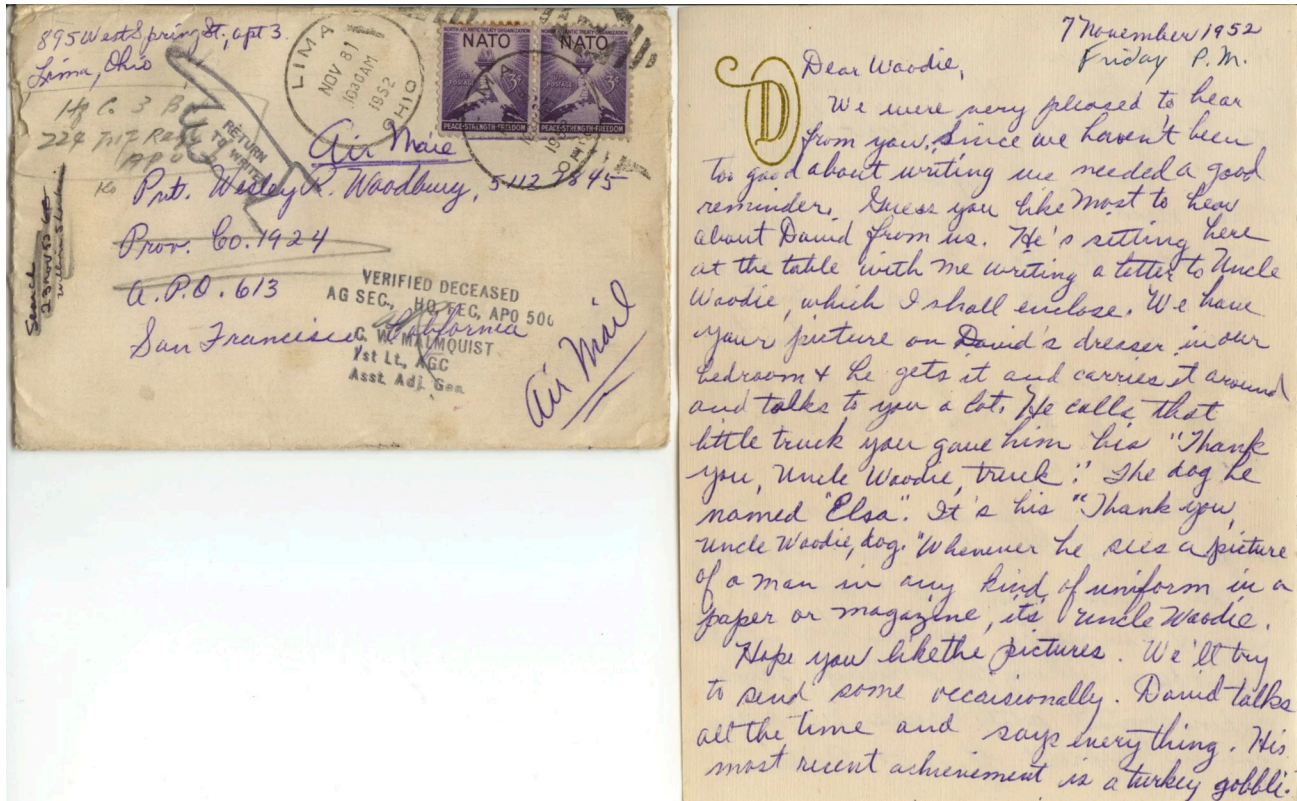 895 West Spring St., apt 3.
Lima, Ohio
Hq C. 3 B
224 Inf Reg
APO
RETURN
TO WRITER
LIMA
NOV 81
1030 AM
1952
OHIO
NORTH ATLANTIC TREATY ORGANIZATION
NATO
3¢
PEACE-STRENGTH-FREEDOM
NORTH ATLANTIC TREATY ORGANIZATION
NATO
3¢
PEACE-STRENGTH-FREEDOM
Air Mail
Pvt. Wesley R. Woodbury, 5112 9845
Prov. Co. 1924
A.P.O. 613
San Francisco California
Search
23 Nov 52
VERIFIED DECEASED
AG SEC., HQ, FEC, APO 500
C. W. MALMQUIST
1st Lt., AGC
Asst. Adj. Gen.
Air Mail
7 November 1952
Friday P.M.
D
Dear Woodie,
We were very pleased to hear
from you. Since we haven't been
too good about writing we needed a good
reminder. Guess you like most to hear
about David from us. He's sitting here
at the table with me writing a letter to Uncle
Woodie, which I shall enclose. We have
your picture on David's dresser in our
bedroom + he gets it and carries it around
and talks to you a lot. He calls that
little truck you gave him his "Thank
you, Uncle Woodie, truck". The dog he
named "Elsa". It's his "Thank you,
Uncle Woodie, dog." Whenever he sees a picture
of a man in any kind of uniform in a
paper or magazine, it's Uncle Woodie.
Hope you like the pictures. We'll try
to send some occaisionally. David talks
all the time and says everything. His
most recent achievement is a turkey gobble.